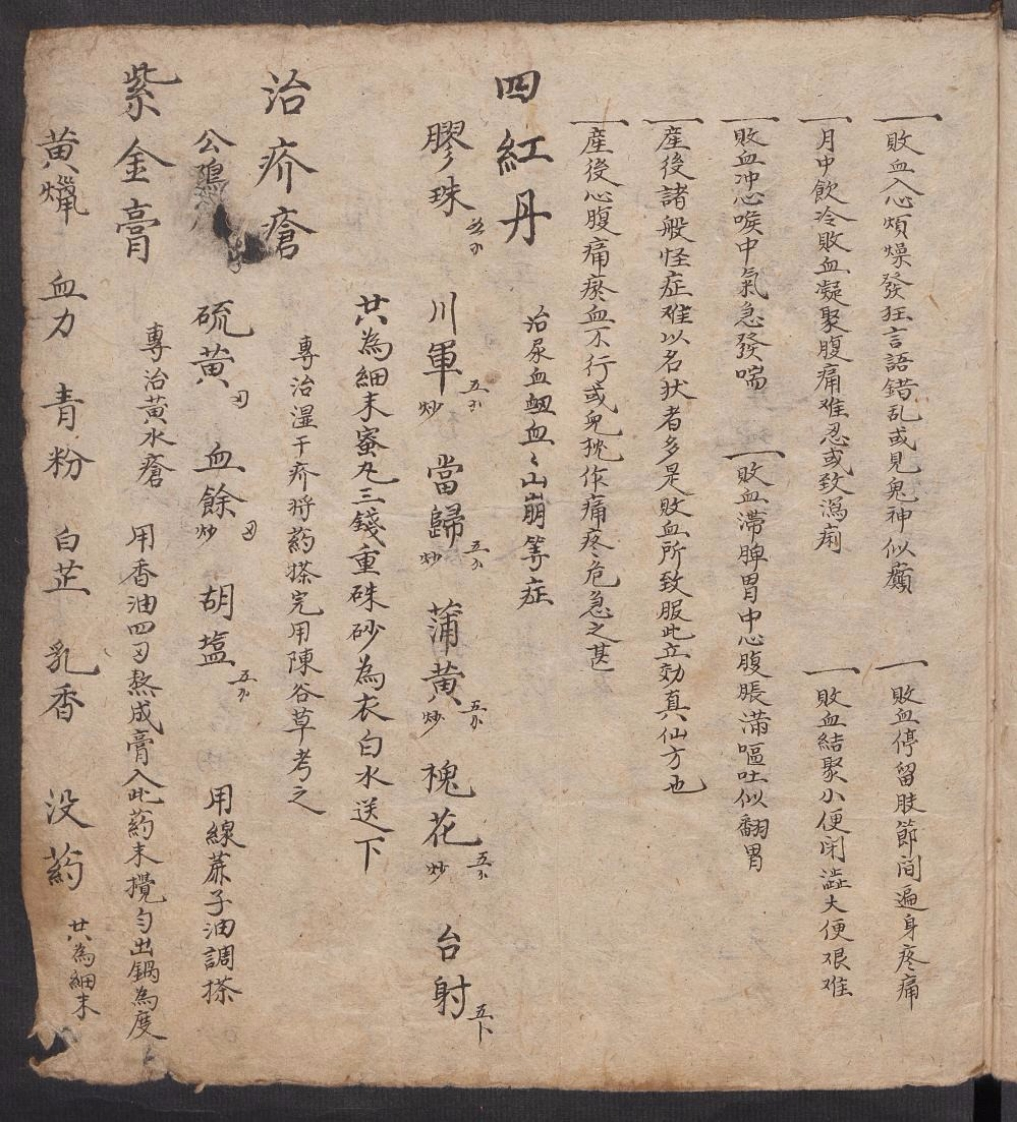 一敗血入心煩燥發狂言語錯乱或見鬼神似癲　一敗血停留肢節间遍身疼痛
一月中飲冷敗血凝聚腹痛难忍或致瀉痢　一敗血結聚小便闭澁大便艰难
一敗血冲心喉中氣急發喘　一敗血滯脾胃中心腹脹滿嘔吐似翻胃
一産後諸般怪症难以名状者多是敗血所致服此立効真仙方也
一産後心腹痛瘀血不行或兒枕作痛疼危急之甚
四紅丹　治尿血衂血血山崩等症
膠珠　川軍炒　當歸炒　蒲黄炒　槐花炒　台射
共為細末蜜丸三錢重硃砂為衣白水送下
治疥瘡　專治湿干疥将药搽完用陳谷草考之
公　硫黄　血餘炒　胡塩　用線蔴子油調搽
紫金膏　專治黄水瘡　用香油四刄熬成膏入此药末攪匀出鍋為度
黄爉　血力　青粉　白芷　乳香　没药　共為細末